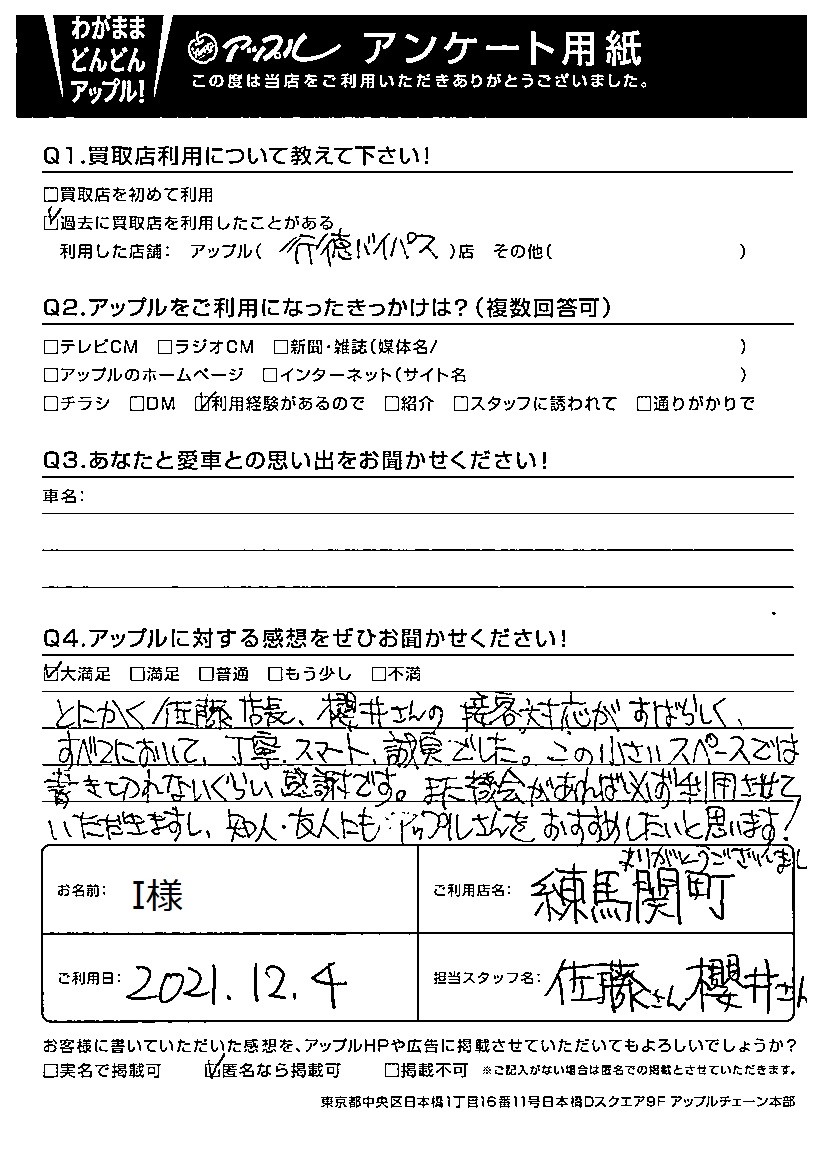 わがまま
どんどん
アップル!
アップル アンケート用紙
この度は当店をご利用いただきありがとうございました。
Q1.買取店利用について教えて下さい!
□買取店を初めて利用
☑過去に買取店を利用したことがある
利用した店舗: アップル( 行徳バイパス )店 その他( )
Q2.アップルをご利用になったきっかけは?(複数回答可)
□テレビCM □ラジオCM □新聞・雑誌(媒体名/ )
□アップルのホームページ □インターネット(サイト名 )
□チラシ □DM ☑利用経験があるので □紹介 □スタッフに誘われて □通りがかりで
Q3.あなたと愛車との思い出をお聞かせください!
車名:
Q4.アップルに対する感想をぜひお聞かせください!
☑大満足 □満足 □普通 □もう少し □不満
とにかく佐藤店長、櫻井さんの接客対応がすばらしく、
すべてにおいて、丁寧、スマート、誠実でした。この小さいスペースでは
書ききれないぐらい感謝です。また機会があれば必ず利用させて
いただきますし、知人・友人にもアップルさんをおすすめしたいと思います!
ありがとうございまし
お名前: I様
ご利用店名: 練馬関町
ご利用日: 2021.12.4
担当スタッフ名: 佐藤さん 櫻井さん
お客様に書いていただいた感想を、アップルHPや広告に掲載させていただいてもよろしいでしょうか?
□実名で掲載可 ☑匿名なら掲載可 □掲載不可 ※ご記入がない場合は匿名での掲載とさせていただきます。
東京都中央区日本橋1丁目16番11号日本橋Dスクエア9F アップルチェーン本部